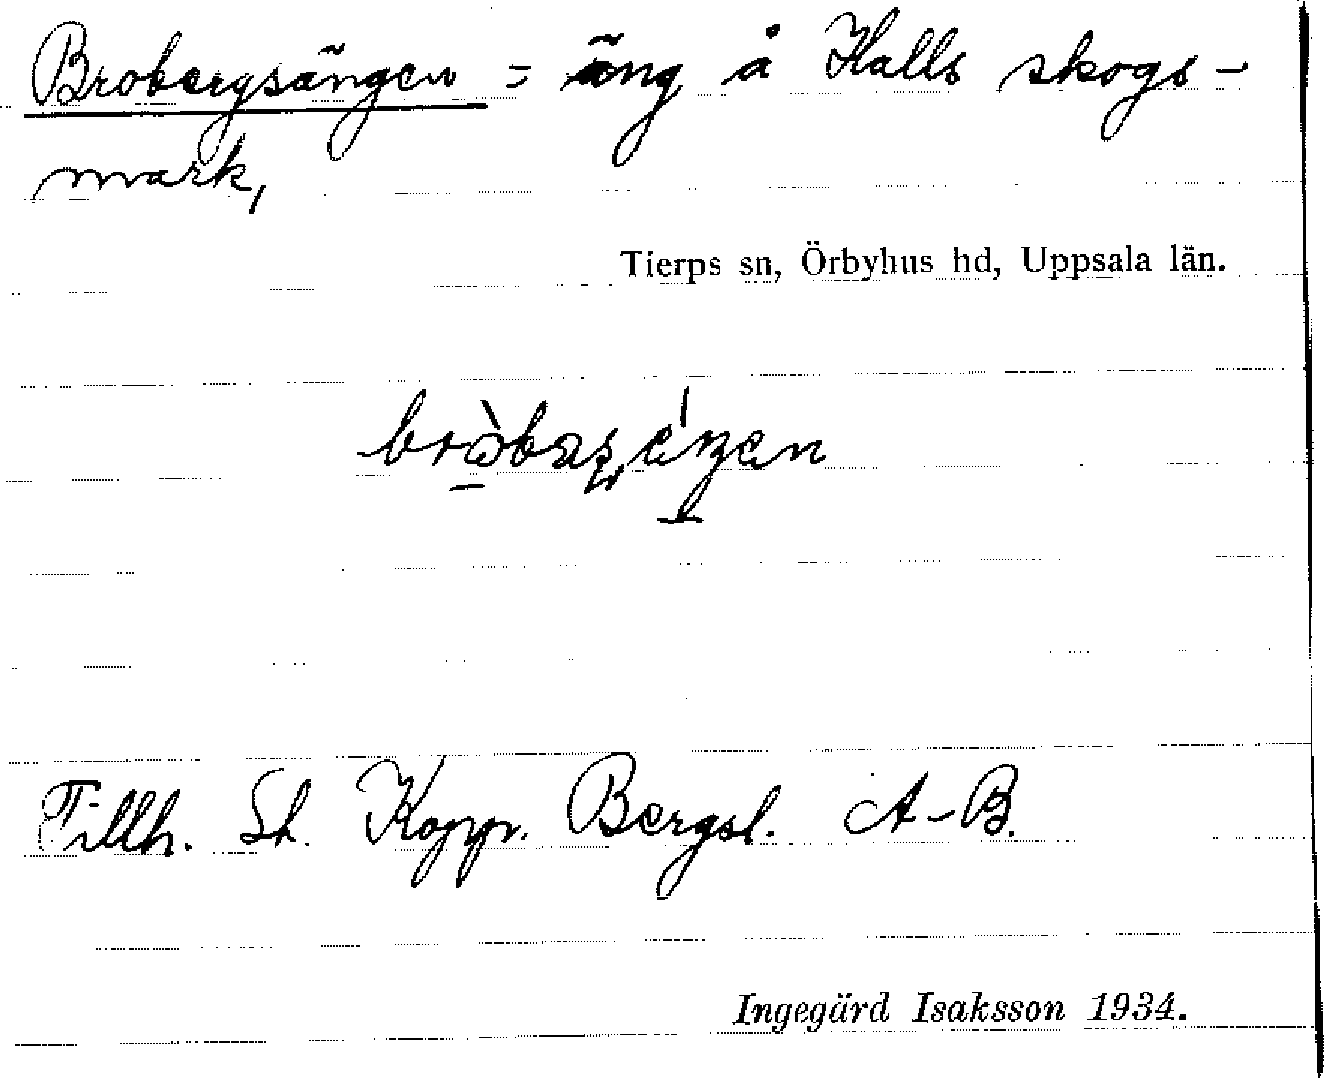 Brobergsängen = äng å Halls skogs-
mark,
Tierps sn, Örbyhus hd, Uppsala län.
Tillh. St. Kopp. Bergsl. A-B.
Ingegärd Isaksson 1934.